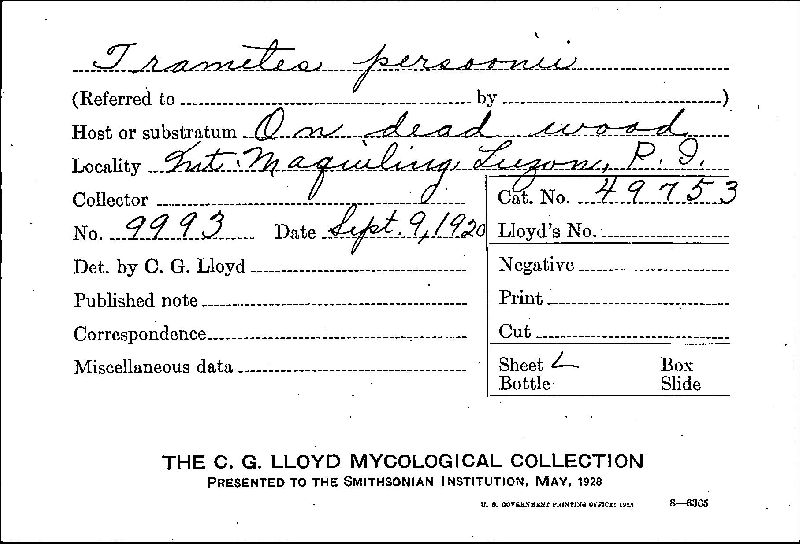 Trametes persoonii
(Referred to by )
Host or substratum On dead wood
Locality Mt. Maquiling, Luzon, P. I.
Collector
Cat. No. 49753
No. 9993 Date Sept. 9, 1920
Lloyd's No.
Det. by C. G. Lloyd
Negative
Published note
Print
Correspondence
Cut
Miscellaneous data
Sheet Box
Bottle Slide
THE C. G. LLOYD MYCOLOGICAL COLLECTION
PRESENTED TO THE SMITHSONIAN INSTITUTION, MAY, 1928
U. S. GOVERNMENT PRINTING OFFICE: 8—6305